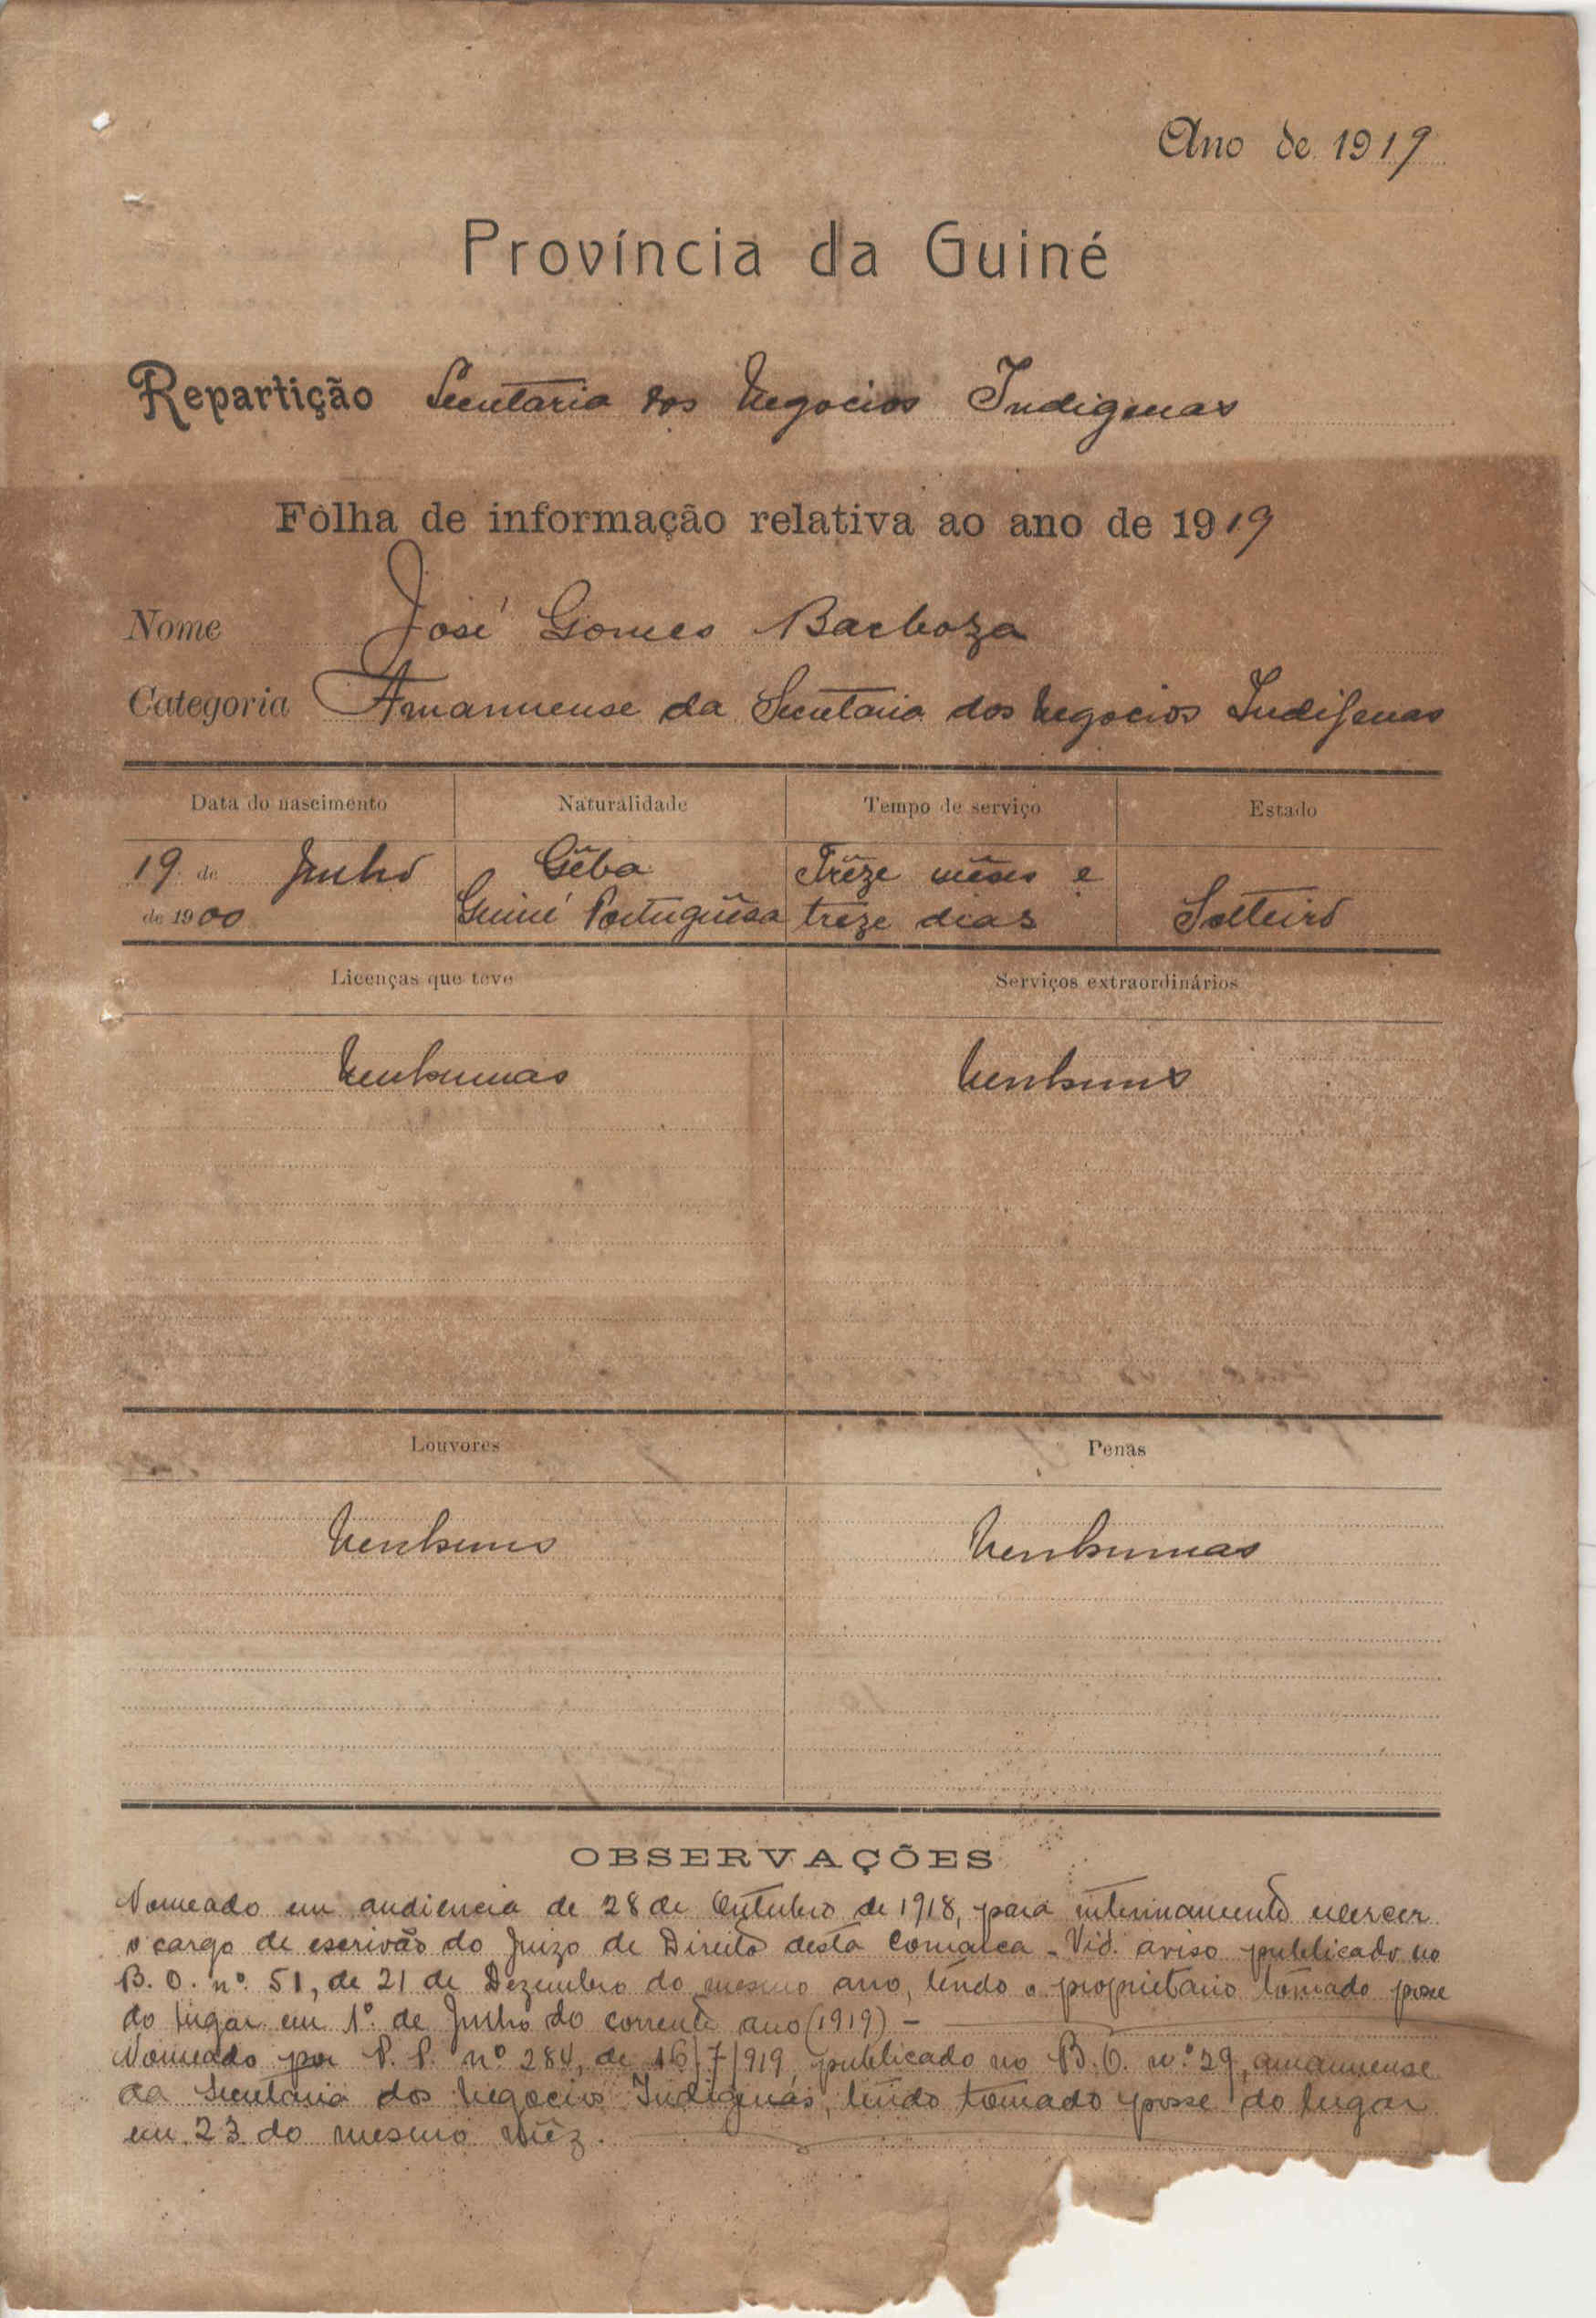 Ano de 1919
Província da Guiné
Repartição Secretaria dos Negocios Indigenas
Fôlha de informação relativa ao ano de 1919
Nome José Gomes Barboza
Categoria Amanuense da Secretaria dos Negocios Indigenas
Data do nascimento Naturalidade Tempo de serviço Estado
19 de Junho Gêba Trêze mêses e
de 1900 Guiné Portuguêsa trêze dias Solteiro
Licenças que teve Serviços extraordinários
Nenhumas Nenhuns
Louvores Penas
Nenhuns Nenhumas
OBSERVAÇÕES
Nomeado em audiencia de 28 de Outubro de 1918, para interinamente exercer
o cargo de escrivão do Juizo de Direito desta Comarca - Vid. aviso publicado no
B. O. nº 51, de 21 de Dezembro do mesmo ano, tendo o proprietario tomado posse
do lugar em 1º de Junho do corrente ano (1919) -
Nomeado por P. P. nº 284, de 16/7/919, publicado no B. O. n.º 29, amanuense
da Secretaria dos Negocios Indigenas, tendo tomado posse do lugar
em 23 do mesmo mêz.